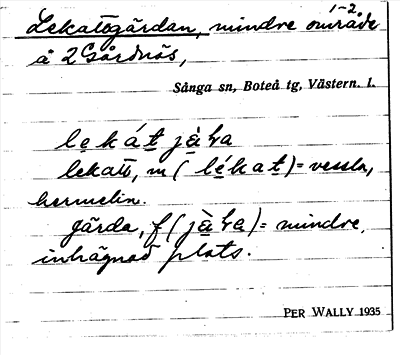 1-2
Lekattgärdan, mindre område
å 2 Gårdnäs,
Sånga sn, Boteå tg, Västern. l.
lekatt, m (lékat) = vessla,
hermelin.
gärda, f ( = mindre,
inhägnad plats.
PER WALLY 1935